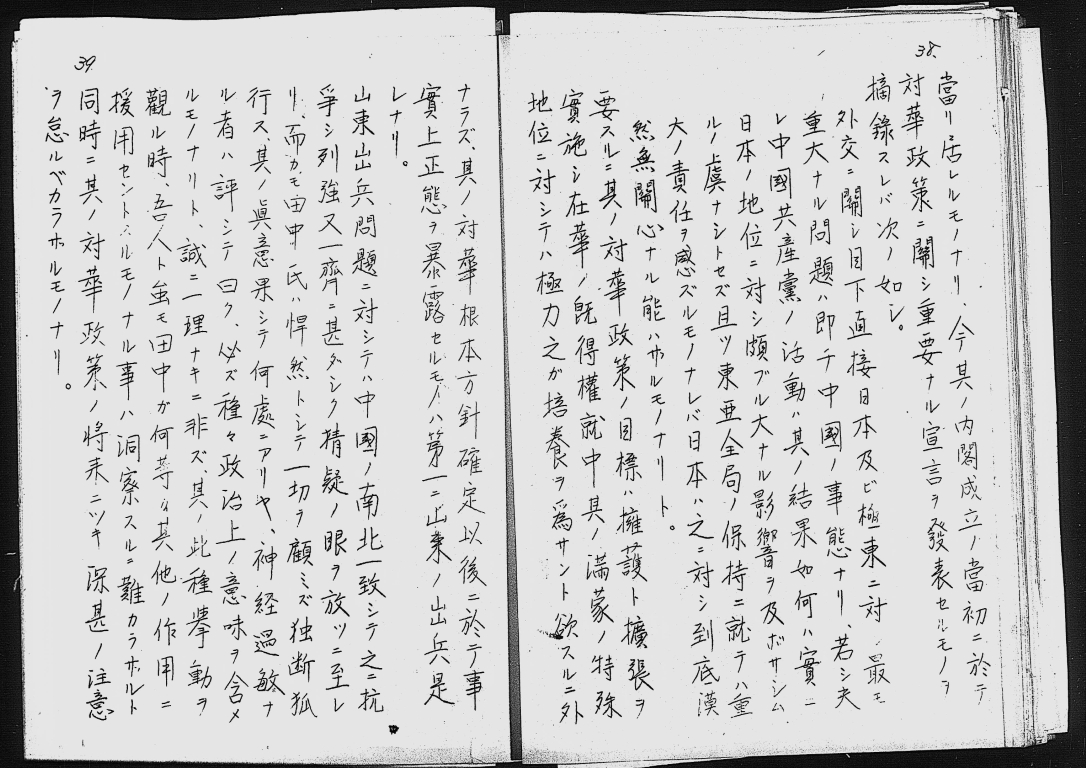 38.
當リ居レルモノナリ、今其ノ内閣成立ノ當初ニ於テ
対華政策ニ關シ重要ナル宣言ヲ發表セルモノヲ
摘錄スレバ次ノ如シ。
外交ニ關シ目下直接日本及ビ極東ニ対 最モ
重大ナル問題ハ即チ中國ノ事態ナリ、若シ夫
レ中國共産黨ノ活動ハ其ノ結果如何ハ實ニ
日本ノ地位ニ対シ頗ブル大ナル影響ヲ及ボサシム
ルノ虞ナシトセズ且ツ東亜全局ノ保持ニ就テハ重
大ノ責任ヲ感ズルモノナレバ日本ハ之ニ対シ到底漠
然無關心ナル能ハザルモノナリト。
要スルニ其ノ対華政策ノ目標ハ擁護ト擴張ヲ
實施シ在華ノ既得權就中其ノ満蒙ノ特殊
地位ニ対シテハ極力之ガ培養ヲ爲サント欲スルニ外
39.
ナラズ、其ノ対華根本方針確定以後ニ於テ事
實上正態ヲ暴露セルモノハ第一ニ山東ノ出兵是
レナリ。
山東出兵問題ニ対シテハ中國ノ南北一致シテ之ニ抗
爭シ列強又一齊ニ甚ダシク猜疑ノ眼ヲ放ツニ至レ
リ、而カモ田中氏ハ悍然トシテ一切ヲ顧ミズ独断狐
行ス、其ノ眞意果シテ何處ニアリヤ、神経過敏ナ
ル者ハ評シテ曰ク、必ズ種々政治上ノ意味ヲ含メ
ルモノナリト、誠ニ一理ナキニ非ズ、其ノ此種挙動ヲ
觀ル時、吾人ト虽モ田中ガ何等カ其他ノ作用ニ
援用セントスルモノナル事ハ洞察スルニ難カラザルト
同時ニ其ノ対華政策ノ将来ニツキ深甚ノ注意
ヲ怠ルベカラザルモノナリ。